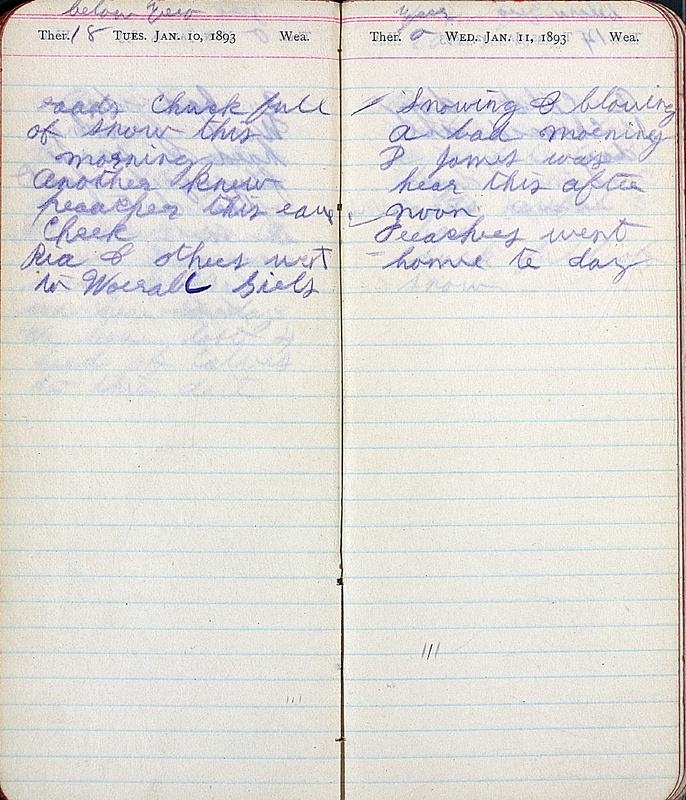 below Zero
Ther. 18 TUES. JAN. 10, 1893 Wea.
roads Chuck full
of snow this
morning
Another knew
preacher this eave
Cheek
Ria & others went
to Worrall Girls
Zero
Ther. 0 WED. JAN. 11, 1893 Wea.
Snowing & blowing
a bad morning
P James was
hear this after
noon
Preaches went
home to day
snow
111